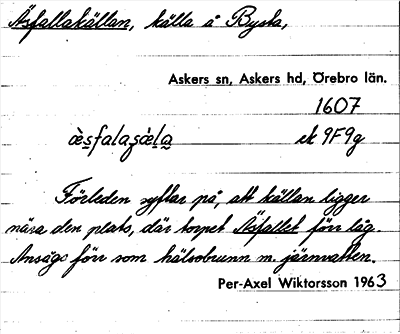 Äsfallakällan, källa å Bysta,
Askers sn, Askers hd, Örebro län.
1607
æ̀sfalaʂæ̀la ek 9F9g
Förleden syftar på, att källan ligger
nära den plats, där torpet Äsfallet förr låg.
Ansågs förr som hälsobrunn m. järnvatten.
Per-Axel Wiktorsson 1963